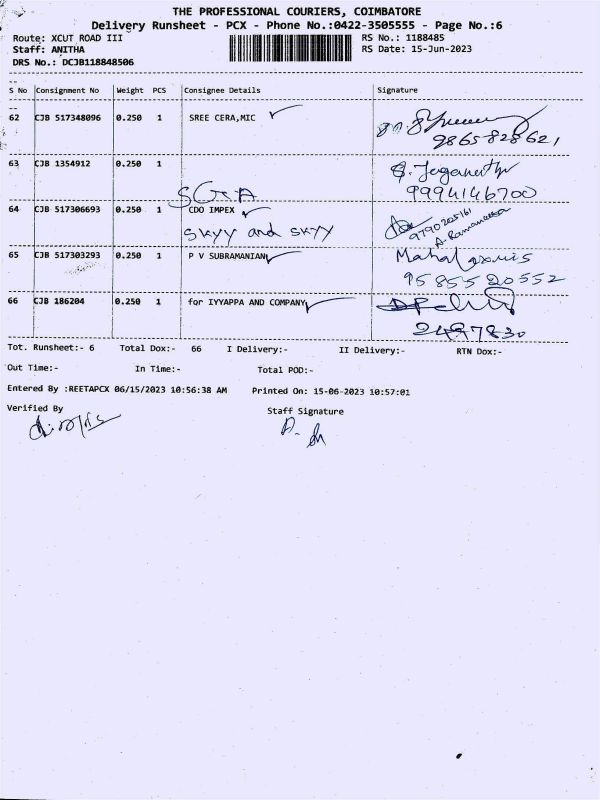 THE PROFESSIONAL COURIERS, COIMBATORE
Delivery Runsheet - PCX - Phone No.:0422-3505555 - Page No.:6
Route: XCUT ROAD III RS No.: 1188485
Staff: ANITHA RS Date: 15-Jun-2023
DRS No.: DCJB118848506
S No Consignment No Weight PCS Consignee Details Signature
62 CJB 517348096 0.250 1 SREE CERA,MIC
9865828621
63 CJB 1354912 0.250 1 S. Jeganathn
SGA 9994146700
64 CJB 517306693 0.250 1 CDO IMPEX 9790205161
skyy and skyy A. Ramanathan
65 CJB 517303293 0.250 1 P V SUBRAMANIAN Mahal
9585520552
66 CJB 186204 0.250 1 for IYYAPPA AND COMPANY
2497830
Tot. Runsheet:- 6 Total Dox:- 66 I Delivery:- II Delivery:- RTN Dox:-
Out Time:- In Time:- Total POD:-
Entered By :REETAPCX 06/15/2023 10:56:38 AM Printed On: 15-06-2023 10:57:01
Verified By Staff Signature